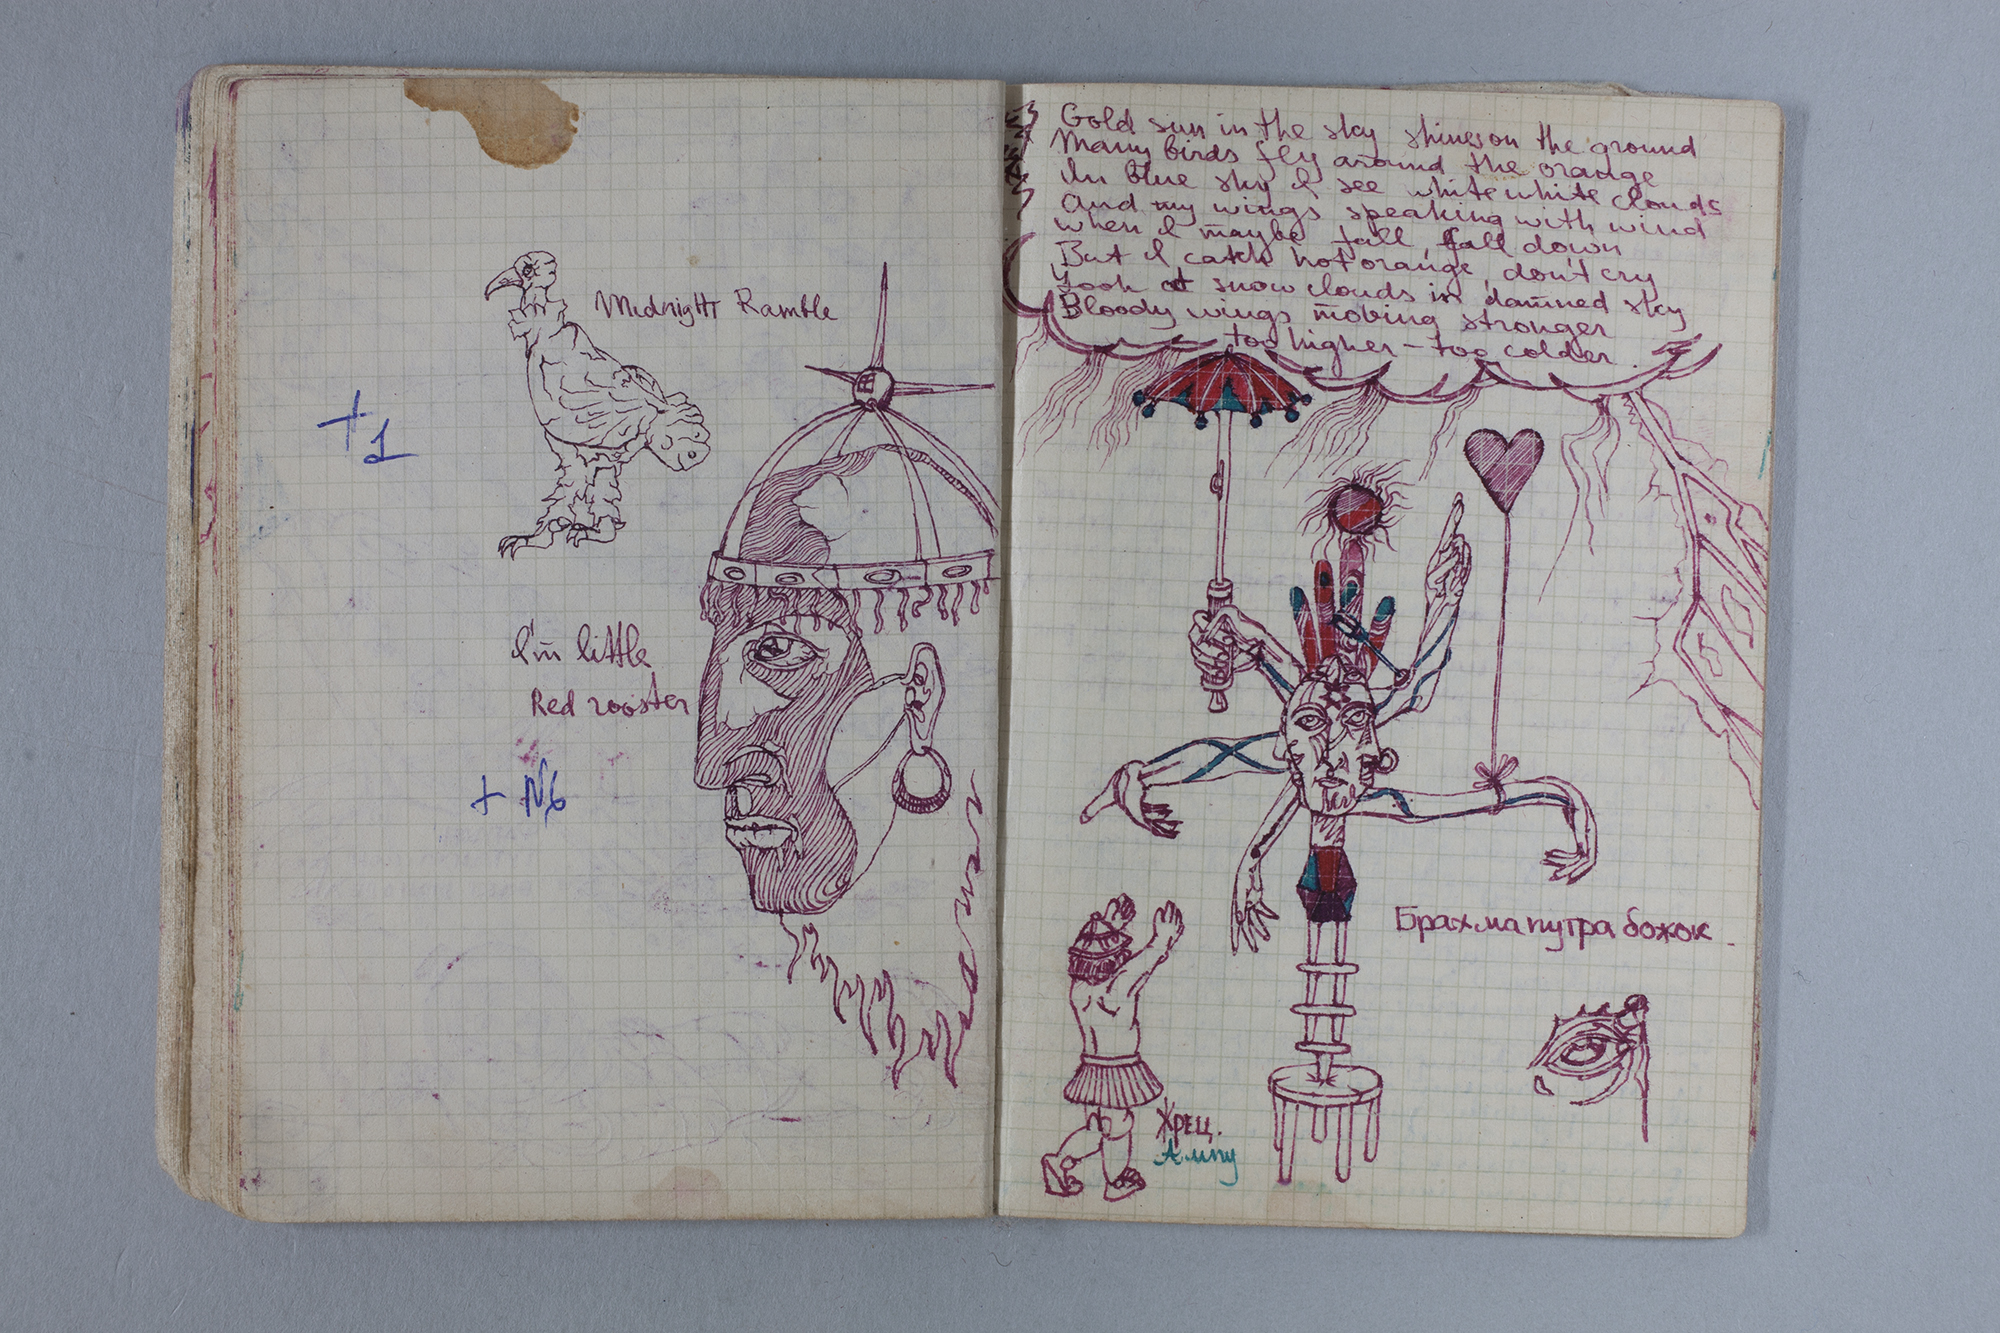 Midnight Ramble
+1
I'm little
Red rooster
+ N6
Gold sun in the sky shines on the ground
Many birds fly around the orange
In blue sky I see white white clouds
And my wings speaking with wind
when I maybe fall, fall down
But I catch hot orange, don't cry
Look at snow clouds in damned sky
Bloody wings mobing stronger
too higher – too colder.
Брахмапутра божок.
Жрец.
Ампу